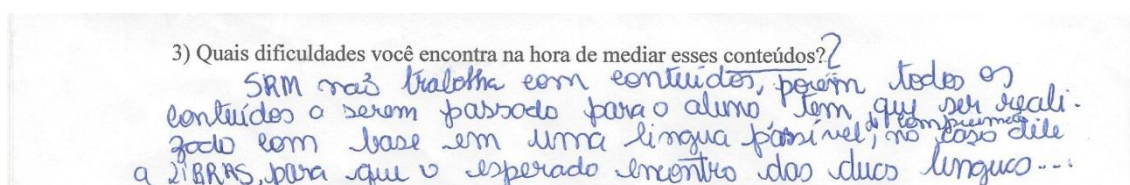 3) Quais dificuldades você encontra na hora de mediar esses conteúdos??
SRM não trabalha com conteúdos, porém todos os
conteúdos a serem passado para o aluno, tem que ser reali-
zado com base em uma língua passível, de compreensão no caso dele
a LIBRAS, para que o esperado encontro das duas línguas...